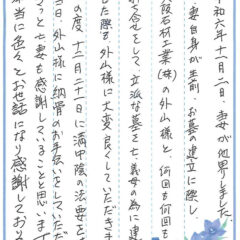 令和六年十一月一日、妻が他界しました。
妻自身が生前、お墓の建立に際し
石材工業(株)の外山様と、何回も何回も
合せをして、立派な墓を亡義母の為に建
した際も外山様に大変良くしていただきま
の度、十二月二十一日に満中陰の法要を
当日、外山様に納骨のお手伝いをしていただ
っと亡妻も感謝していることと思います
本当に色々とお世話になり感謝してお